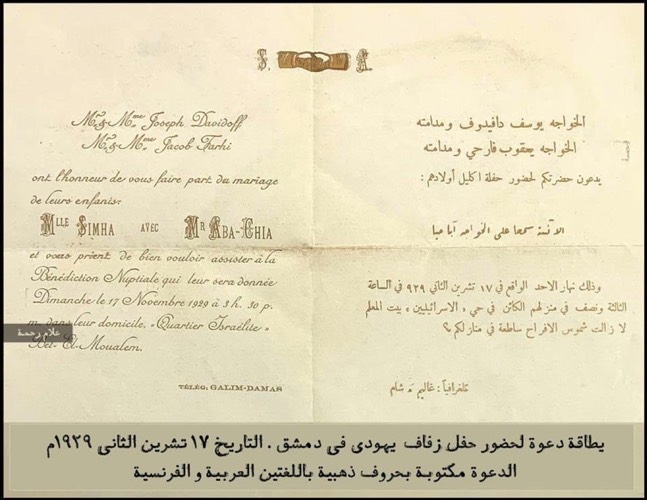 S. A.
Mr & Mme Joseph Davidoff
Mr & Mme Jacob Farhi
ont l'honneur de vous faire part du mariage
de leurs enfants:
Mlle Simha avec Mr Aba-Chia
et vous prient de bien vouloir assister à la
Bénédiction Nuptiale qui leur sera donnée
Dimanche le 17 Novembre 1929 à 3 h. 30 p.
m. dans leur domicile. «Quartier Israélite»
Bet-El-Moualem.
TÉLÉG. GALIM-DAMAS
الخواجه يوسف دافيدوف ومدامته
الخواجه يعقوب فارحي ومدامته
يدعون حضرتكم لحضور حفلة اكليل أولادهم:
الآنسة سمحا على الخواجه آبا حيا
وذلك نهار الاحد الواقع في ١٧ تشرين الثاني ٩٢٩ في الساعة
الثالثة ونصف في منزلهم الكائن في حي الاسرائيليين «بيت المعلم
لا زالت شموس الافراح ساطعة في منازلكم؟
تلغرافياً: غاليم شام
علام رحمة
بطاقة دعوة لحضور حفل زفاف يهودي في دمشق . التاريخ ١٧ تشرين الثاني ١٩٢٩م
الدعوة مكتوبة بحروف ذهبية باللغتين العربية و الفرنسية